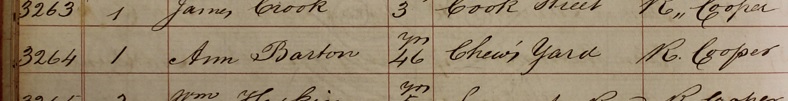 3263 1 James Crook 3 Cook Street R,, Cooper
yrs
3264 1 Ann Barton 46 Chew's Yard R. Cooper
yrs
Wm R Cooper